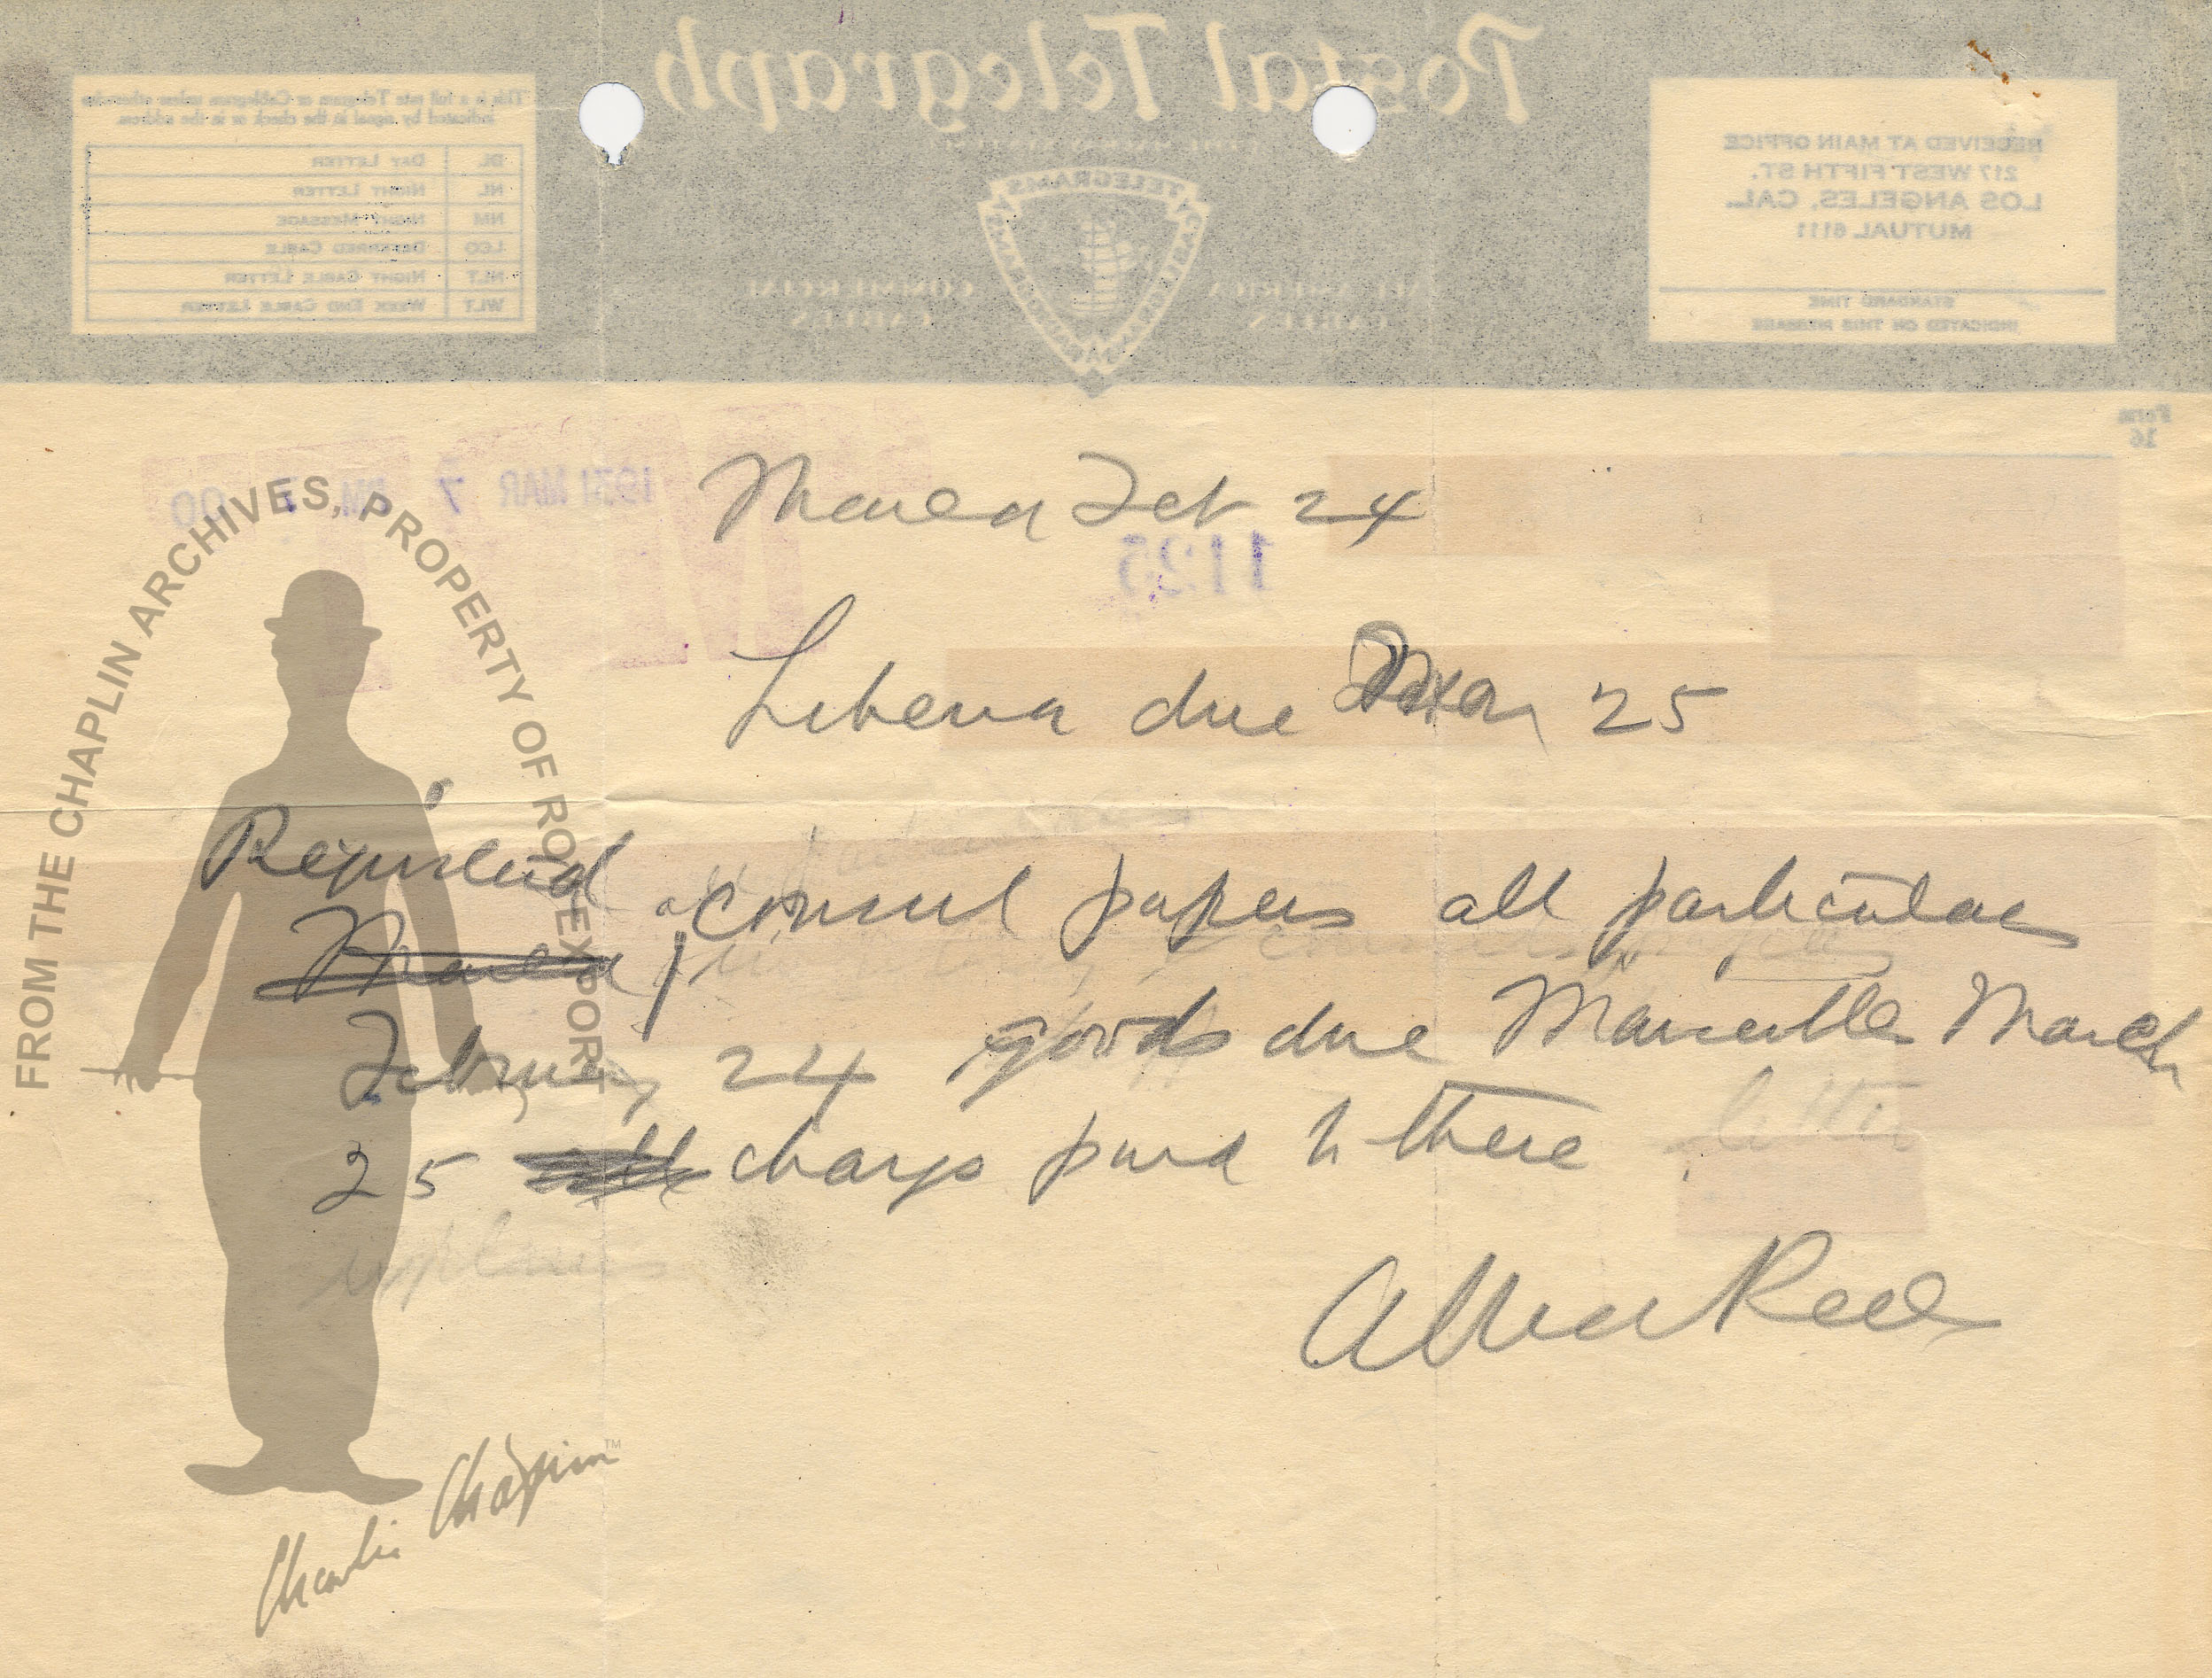 Postal Telegraph
This is a full rate Telegram or Cablegram unless otherwise
indicated by signal in the check or in the address.
DL DAY LETTER
NL NIGHT LETTER
NM NIGHT MESSAGE
LCO DEFERRED CABLE
NLT NIGHT CABLE LETTER
WLT WEEK END CABLE LETTER
TELEGRAMS
CABLEGRAMS
RADIOGRAMS
COMMERCIAL
CABLES
ALL AMERICA
CABLES
RECEIVED AT MAIN OFFICE
217 WEST FIFTH ST.
LOS ANGELES, CAL.
MUTUAL 6111
STANDARD TIME
INDICATED ON THIS MESSAGE
Form
16
1931 MAR 7 PM 1 00
1125
Feb 24
due 25
Registered consul papers all particulars
February 24 goods due Marseille March
25 charges paid to there
letter
explains
FROM THE CHAPLIN ARCHIVES, PROPERTY OF ROY EXPORT
Charlie Chaplin™